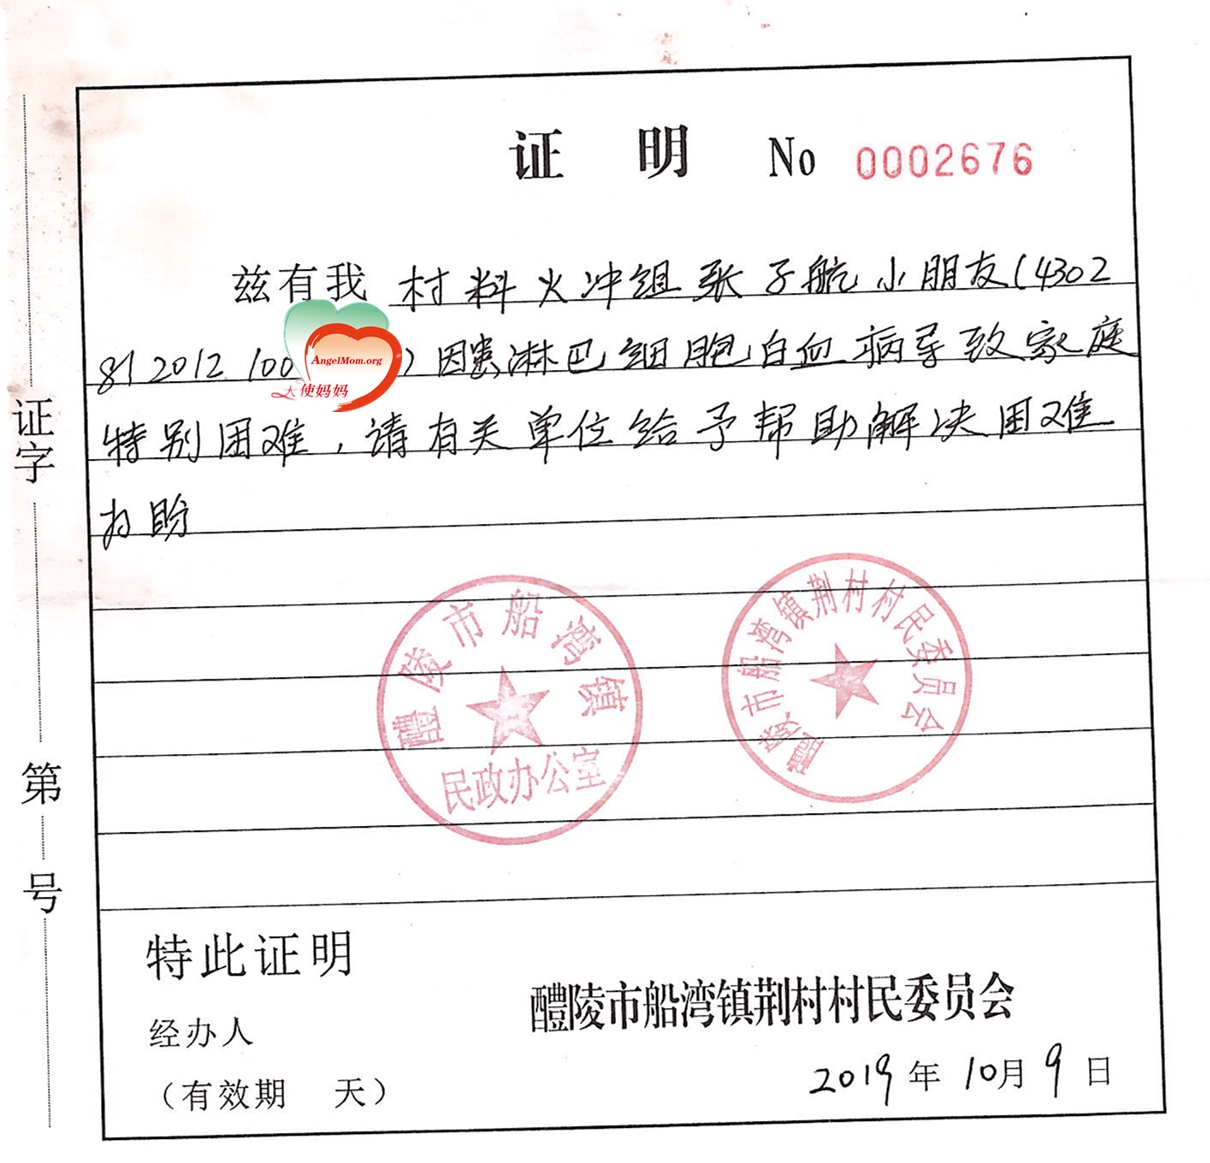 证 明 No 0002676
兹有我 村料火冲组张子航小朋友(4302
81 2012 100 )因患淋巴细胞白血病导致家庭
AngelMom.org
天使妈妈
特别困难,请有关单位给予帮助解决困难
为盼
醴陵市船湾镇
民政办公室
醴陵市船湾镇荆村村民委员会
特此证明
醴陵市船湾镇荆村村民委员会
经办人
2019年10月9日
(有效期 天)
证字 第 号